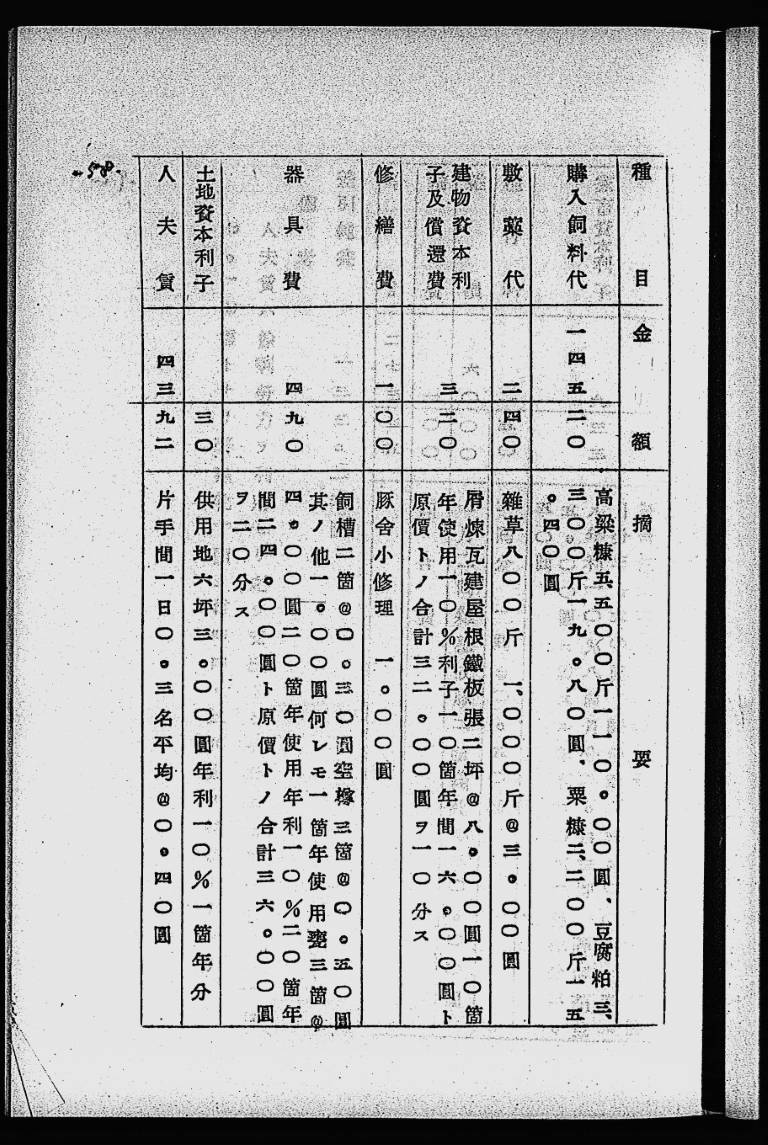 種目
金額
摘要
購入飼料代
一四五二〇
高粱糠五、五〇〇斤一一〇。〇〇圓、豆腐粕三、
三〇〇斤一九。八〇圓、粟糠二、二〇〇斤一五
。四〇圓
敷藁代
二四〇
雜草八〇〇斤 一、〇〇〇斤@三。〇〇圓
建物資本利
子及償還費
三二〇
屑煉瓦建屋根鐵板張二坪@八。〇〇圓一〇箇
年使用一〇%利子一〇箇年間一六。〇〇圓ト
原價トノ合計三二。〇〇圓ヲ一〇分ス
修繕費
一〇〇
豚舍小修理 一。〇〇圓
器具費
四九〇
飼槽二箇@〇。三〇圓空樽三箇@〇。五〇圓
其ノ他一。〇〇圓何レモ一箇年使用甕三箇@
四。〇〇圓二〇箇年使用年利一〇%二〇箇年
間二四。〇〇圓ト原價トノ合計三六。〇〇圓
ヲ二〇分ス
土地資本利子
三〇
供用地六坪三。〇〇圓年利一〇%一箇年分
人夫賃
四三九二
片手間一日〇。三名平均@〇。四〇圓
-58-